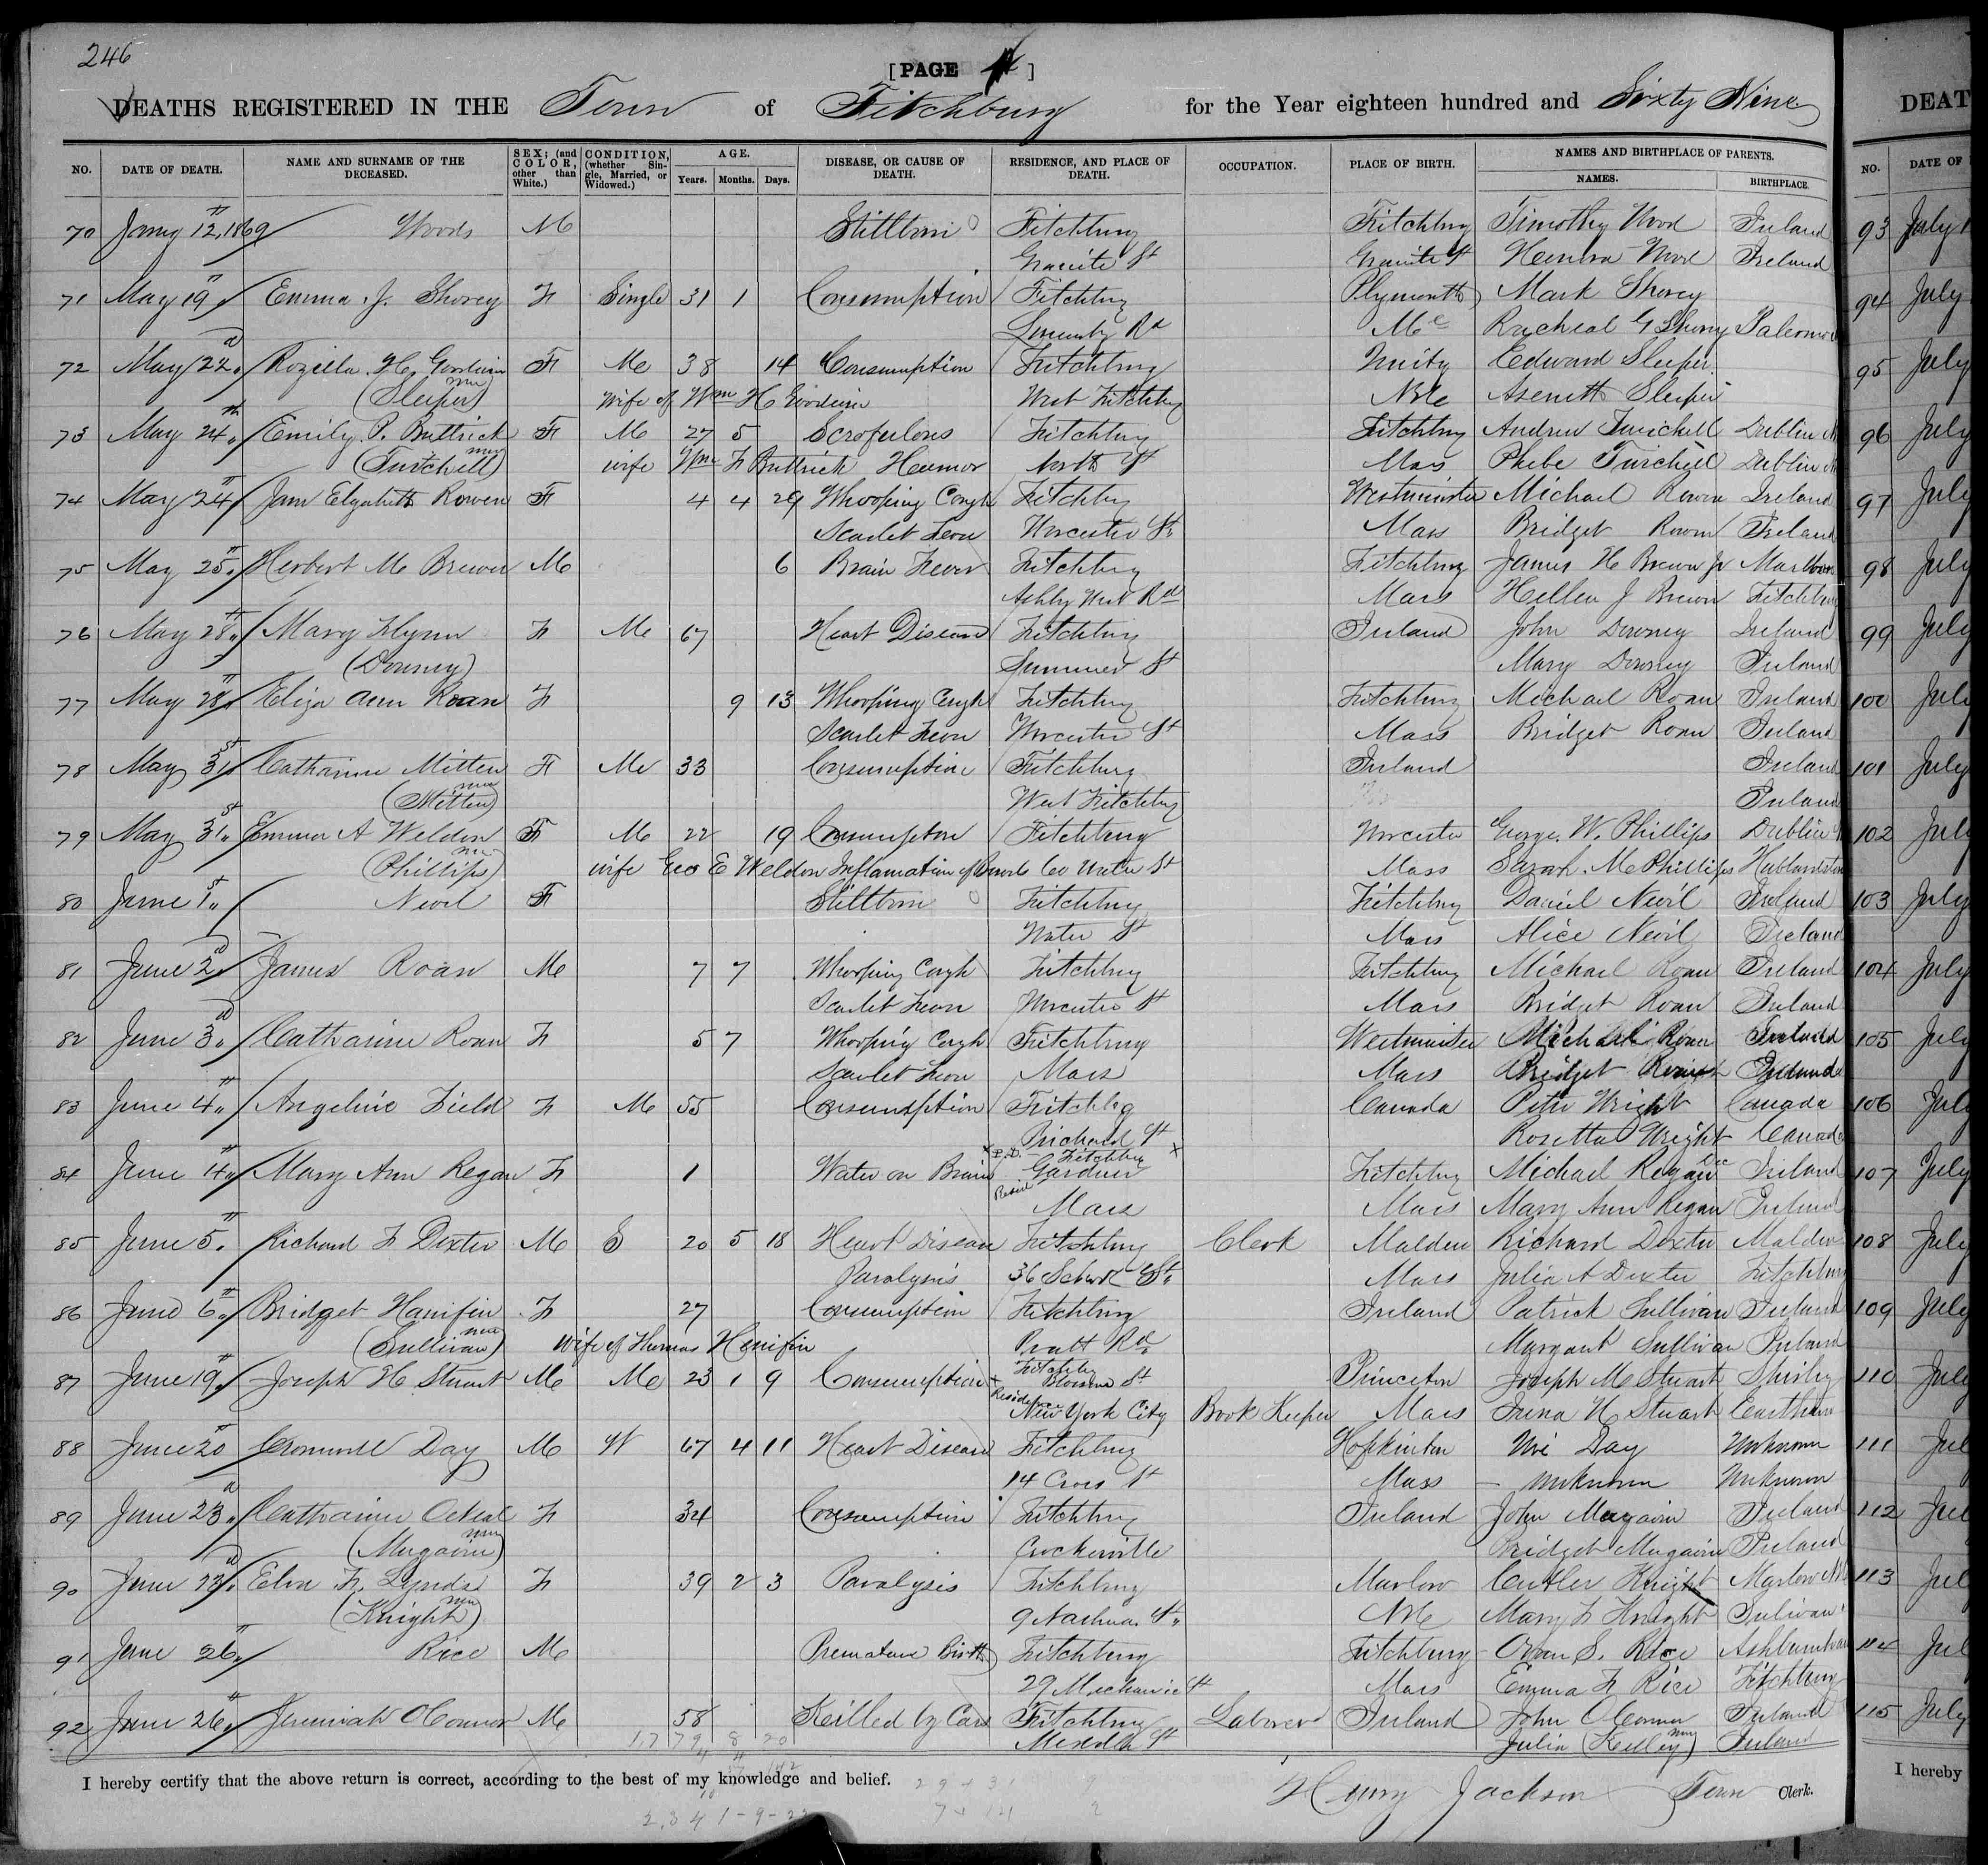 246
[PAGE 4 ]
DEATHS REGISTERED IN THE Town of Fitchburg for the Year eighteen hundred and Sixty Nine
NO. DATE OF DEATH. NAME AND SURNAME OF THE DECEASED. SEX; (and COLOR, other than White.) CONDITION, (whether Single, Married, or Widowed.) AGE. Years. Months. Days. DISEASE, OR CAUSE OF DEATH. RESIDENCE, AND PLACE OF DEATH. OCCUPATION. PLACE OF BIRTH. NAMES AND BIRTHPLACE OF PARENTS. NAMES. BIRTHPLACE.
70 Jany 12th, 1869 Woods M Stillborn Fitchburg Fitchburg Timothy Wood Ireland
Granite St Granite St Wood Ireland
71 May 19th Emma J. Shorey F Single 31 1 Consumption Fitchburg Plymouth Mark Shorey
Rd Me Racheal G Shorey
72 May 22d Rozilla H. Goodwin F M 38 14 Consumption Fitchburg Unity Edward Sleeper
(Sleeper) wife of Wm H Goodwin West Fitchburg NH Aseneth Sleeper
73 May 24th Emily P. Buttrick F M 27 5 Scrofulous Fitchburg Fitchburg Andrew Twichell Dublin
(Twichell) wife Wm F Buttrick Humor North St Mass Phebe Twichell Dublin
74 May 24th Jane Elizabeth Rowen F 4 4 29 Whooping Cough Fitchburg Westminster Michael Rowen Ireland
Scarlet Fever Worcester St Mass Bridget Rowen Ireland
75 May 25th Herbert M Brewer M 6 Brain Fever Fitchburg Fitchburg James H Brewer Jr Marlboro
Ashby West Rd Mass Hellen J Brewer Fitchburg
76 May 28th Mary Flynn F M 67 Heart Disease Fitchburg Ireland John Downey Ireland
(Downey) Summer St Mary Downey Ireland
77 May 28th Eliza Ann Roan F 9 13 Whooping Cough Fitchburg Fitchburg Michael Roan Ireland
Scarlet Fever Worcester St Mass Bridget Roan Ireland
78 May 31st Catharine Mitten F M 33 Consumption Fitchburg Ireland Ireland
(Mitten) West Fitchburg Ireland
79 May 31st Emma A Weldon F M 22 19 Consumption Fitchburg Worcester George. W. Phillips Dublin
(Phillips) wife Geo E Weldon Inflamation of Bowels 60 Water St Mass Sarah M Phillips Hubbardston
80 June 1st Nevil F Stillborn Fitchburg Fitchburg Daniel Nevil Ireland
Water St Mass Alice Nevil Ireland
81 June 2d James Roan M 7 7 Whooping Cough Fitchburg Fitchburg Michael Roan Ireland
Scarlet Fever Worcester St Mass Bridget Roan Ireland
82 June 3d Catharine Roan F 5 7 Whooping Cough Fitchburg Westminster Michael Roan Ireland
Scarlet Fever Mass Mass Bridget Roan Ireland
83 June 4th Angeline Field F M 55 Consumption Fitchbg Canada Peter Wright Canada
Prichard St Rosetta Wright Canada
P.D. Fitchburg
84 June 4th Mary Ann Regan F 1 Water on Brain Gardner Fitchburg Michael Regan Ireland
Mass Mass Mary Ann Regan Ireland
85 June 5th Richard F Dexter M S 20 5 18 Heart Disease Fitchburg Clerk Malden Richard Dexter Malden
Paralysis 36 School St Mass Julia A Dexter Fitchburg
86 June 6th Bridget Hanifin F 27 Consumption Fitchburg Ireland Patrick Sullivan Ireland
(Sullivan) wife of Thomas Hanifin Pratt Rd Margaret Sullivan Ireland
87 June 19th Joseph H Stuart M M 23 1 9 Consumption Fitchburg Blossom St Princeton Joseph M Stuart Shirley
Residence New York City Book Keeper Mass Irena H Stuart Eastham
88 June 20th Cromwell Day M W 67 4 11 Heart Disease Fitchburg Hopkinton Day Unknown
14 Cross St Mass Unknown Unknown
89 June 23d Catharine F 34 Consumption Fitchburg Ireland John Magaire Ireland
(Magaire) Crockerville Bridget Magaire Ireland
90 June 23d Elva F. Lynds F 39 2 3 Paralysis Fitchburg Marlow Cutler Knight Marlow NH
(Knight) 9 Nashua St NH Mary F Knight Sulivan
91 June 26th Rice M Premature Birth Fitchburg Fitchburg S. Rice Ashburnham
29 Mechanic St Mass Emma F Rice Fitchburg
92 June 26th Jeremiah OConnor M 58 Killed by Cars Fitchburg Laborer Ireland John OConnor Ireland
Meredith St Julia (Kelley) Ireland
I hereby certify that the above return is correct, according to the best of my knowledge and belief.
Henry Jackson Town Clerk.
DEAT
NO. DATE OF
93 July
94 July
95 July
96 July
97 July
98 July
99 July
100 July
101 July
102 July
103 July
104 July
105 July
106 July
107 July
108 July
109 July
110 July
111 Jul
112 Jul
113 Jul
114 Jul
115 July
I hereby